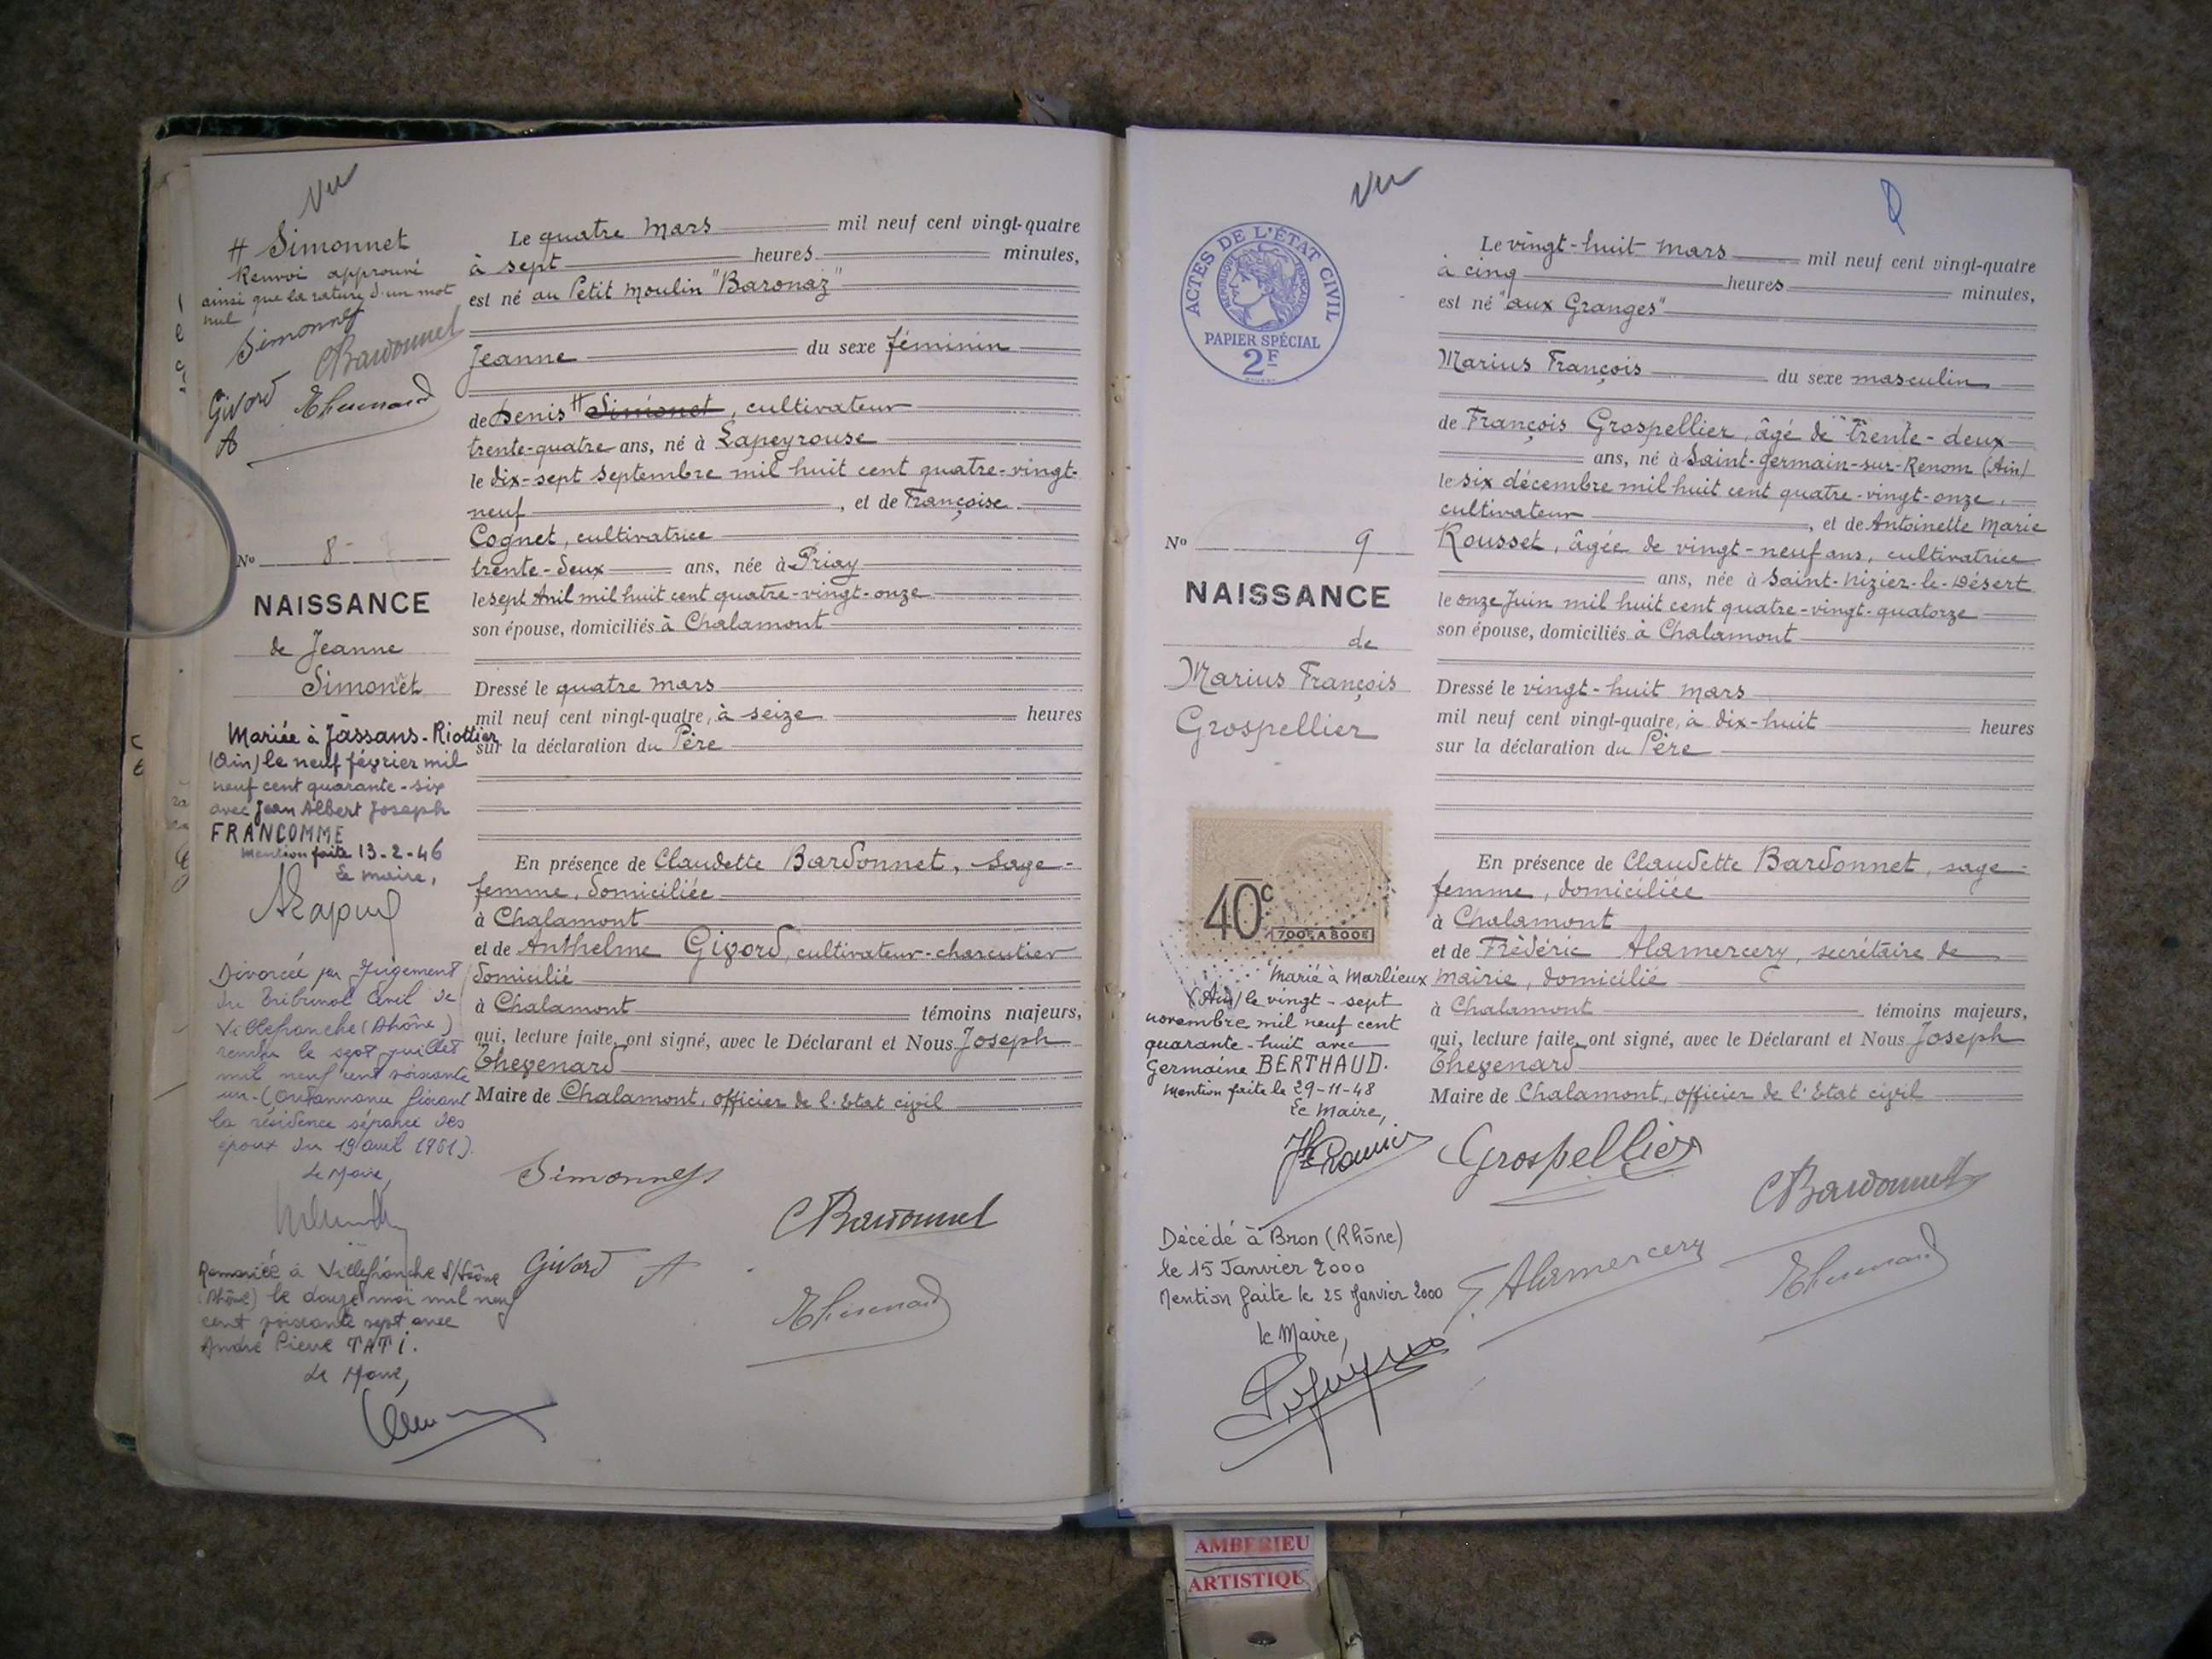 Vu
# Simonnet
Renvoi approuvé
ainsi que la rature d'un mot
nul
Simonnet
CBardonnet
Givord
A
Thevenard
Le quatre Mars mil neuf cent vingt-quatre
à sept heures minutes,
est né au Petit Moulin "Baronaz"
Jeanne du sexe féminin
de Denis # Simonet, cultivateur
trente-quatre ans, né à Lapeyrouse
le dix-sept septembre mil huit cent quatre-vingt-
neuf, et de Françoise
Cognet, cultivatrice
trente-deux ans, née à Priay
le sept Avril mil huit cent quatre-vingt-onze
son épouse, domiciliés à Chalamont
Dressé le quatre Mars
mil neuf cent vingt-quatre, à seize heures
sur la déclaration du Père
En présence de Claudette Bardonnet, sage-
femme, domiciliée
à Chalamont
et de Anthelme Givord, cultivateur-charcutier
domicilié
à Chalamont témoins majeurs,
qui, lecture faite, ont signé, avec le Déclarant et Nous Joseph
Thevenard
Maire de Chalamont, officier de l'Etat civil
Simonnet
CBardonnet
Givord A
Thevenard
No 8
NAISSANCE
de Jeanne
Simonet
Mariée à Jassans-Riottier
(Ain) le neuf février mil
neuf cent quarante-six
avec Jean Albert Joseph
FRANCOMME
Mention faite 13-2-46
Le maire,
Divorcée par Jugement
du Tribunal Civil de
Villefranche (Rhône)
rendu le sept juillet
mil neuf cent soixante
un - (Ordonnance fixant
la résidence séparée des
époux du 19 avril 1961).
Le Maire,
Remariée à Villefranche S/Saône
(Rhône) le douze mai mil neuf
cent soixante sept avec
André Pierre TATI.
Le Maire,
Vu
ACTES DE L'ÉTAT CIVIL
RÉPUBLIQUE FRANÇAISE
PAPIER SPÉCIAL
2F
Le vingt-huit Mars mil neuf cent vingt-quatre
à cinq heures minutes,
est né "aux Granges"
Marius François du sexe masculin
de François Grospellier, âgé de trente-deux
ans, né à Saint-Germain-sur-Renom (Ain)
le six décembre mil huit cent quatre-vingt-onze,
cultivateur, et de Antoinette Marie
Rousset, âgée de vingt-neuf ans, cultivatrice
ans, née à Saint-Nizier-le-Désert
le onze Juin mil huit cent quatre-vingt-quatorze
son épouse, domiciliés à Chalamont
Dressé le vingt-huit Mars
mil neuf cent vingt-quatre, à dix-huit heures
sur la déclaration du Père
En présence de Claudette Bardonnet, sage-
femme, domiciliée
à Chalamont
et de Frédéric Alamercery, secrétaire de
mairie, domicilié
à Chalamont témoins majeurs,
qui, lecture faite, ont signé, avec le Déclarant et Nous Joseph
Thevenard
Maire de Chalamont, officier de l'Etat civil
Grospellier
CBardonnet
Alamercery
Thevenard
No 9
NAISSANCE
de
Marius François
Grospellier
40c
700F A 800F
Marié à Marlieux
(Ain) le vingt-sept
novembre mil neuf cent
quarante-huit avec
Germaine BERTHAUD.
Mention faite le 29-11-48
Le Maire,
Décédé à Bron (Rhône)
le 15 Janvier 2000
Mention faite le 25 Janvier 2000
le Maire,
AMBERIEU
ARTISTIQUE